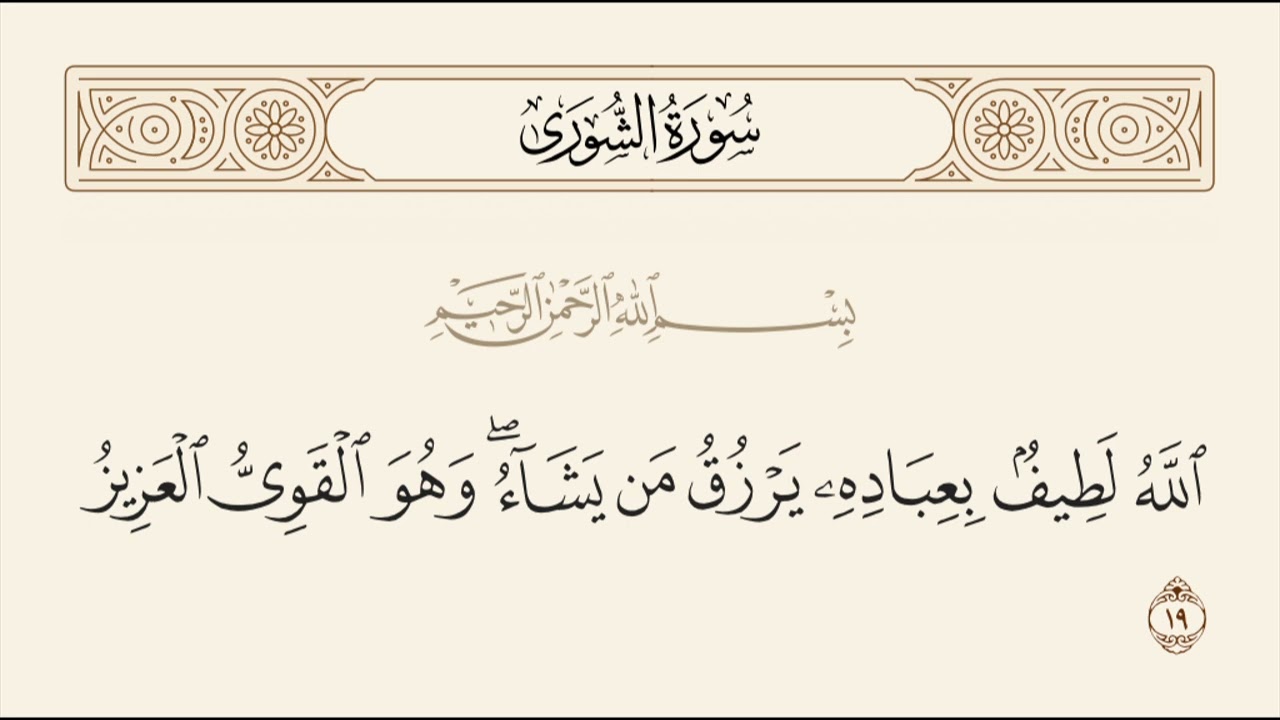 سُورَةُ الشُّورَىٰ
بِسْمِ ٱللَّهِ ٱلرَّحْمَٰنِ ٱلرَّحِيمِ
ٱللَّهُ لَطِيفٌۢ بِعِبَادِهِۦ يَرْزُقُ مَن يَشَآءُۖ وَهُوَ ٱلْقَوِىُّ ٱلْعَزِيزُ
١٩